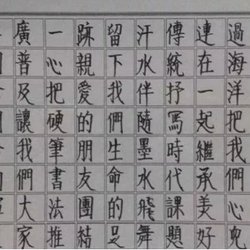 過海洋把我們心
連在一起繼承美好
傳統抒寫時代課題
汗水伴隨墨水飛舞
留下我們生命的足
跡親愛的朋友團結
一心把硬筆書法推
廣普及讓我們大家